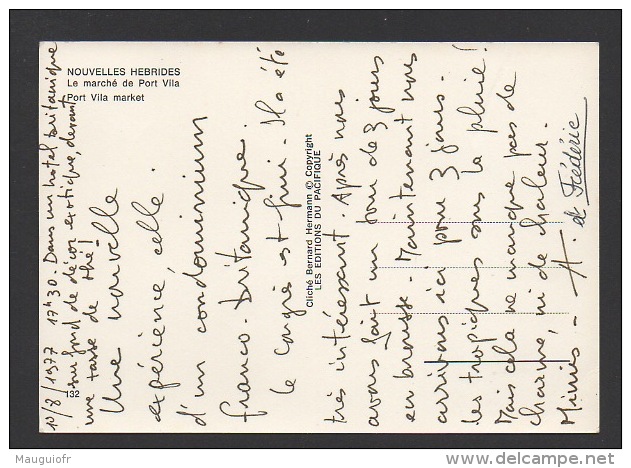 NOUVELLES HEBRIDES
Le marché de Port Vila
Port Vila market
132
10/8/1977 17h30. Dans un hôtel britannique
sur fond de décor exotique, devant
une tasse de thé!
Une nouvelle
expérience, celle
d'un condominium
franco-britannique.
Le congrès est fini. Il a été
Cliché Bernard Hermann © Copyright
LES EDITIONS DU PACIFIQUE
très intéressant. Après nous
avons fait un tour de 3 jours
en brousse. Maintenant nous
arrivons ici pour 3 jours.
Les tropiques sous la pluie!
Mais cela ne manque pas de
charme, ni de chaleur.
A. de Frédéric
Mauguiofr
delcampe.net